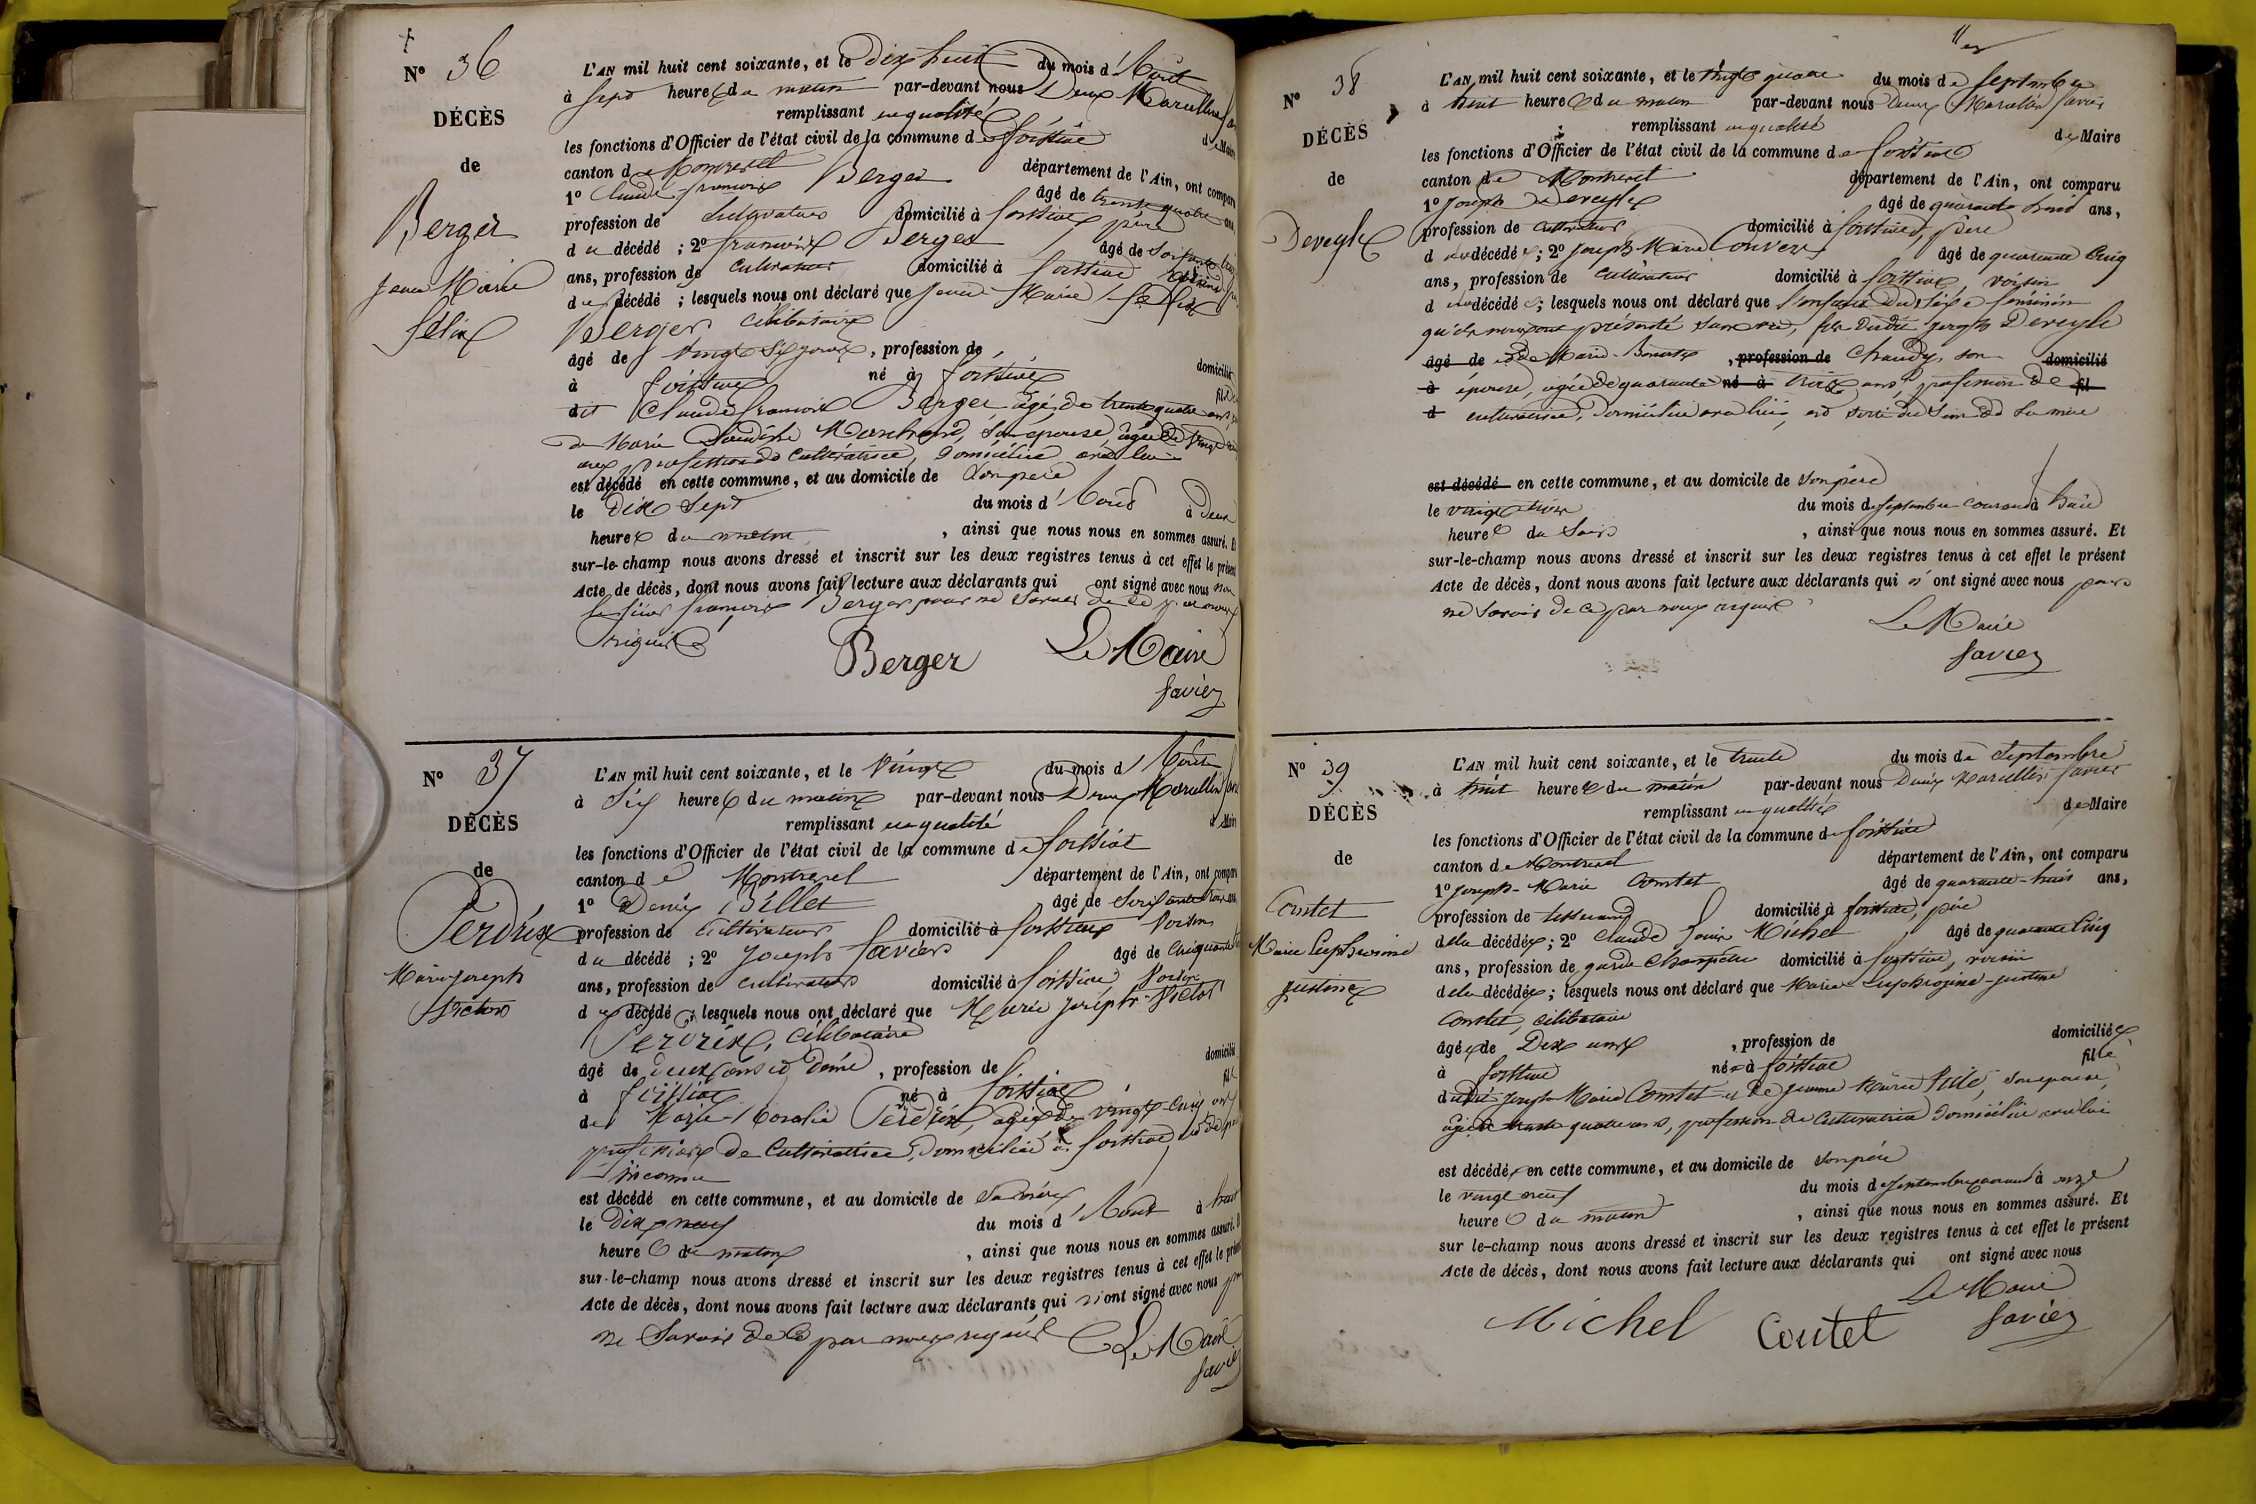 N° 36
DÉCÈS
de
Berger
Jean Marie
félix
L'AN mil huit cent soixante, et le dix huit du mois d'Août
à sept heures du matin par-devant nous Denis Marcellin
remplissant en qualité de Maire
les fonctions d'Officier de l'état civil de la commune de foissiat
canton de Montrevel département de l'Ain, ont comparu
1° Claude françois Berger âgé de trente quatre ans,
profession de cultivateur domicilié à foissiat père
du décédé ; 2° françois Berger âgé de soixante
ans, profession de cultivateur domicilié à foissiat
du décédé ; lesquels nous ont déclaré que Jean Marie félix
Berger célibataire
âgé de vingt six jours, profession de domicilié
à foissiat né à foissiat fils
dit Claude françois Berger âgé de trente quatre ans,
de Marie Marchand, son épouse, âgée de vingt
profession de cultivatrice, domiciliée avec lui
est décédé en cette commune, et au domicile de son père
le dix sept du mois d'Août à deux
heures du matin, ainsi que nous nous en sommes assuré. Et
sur-le-champ nous avons dressé et inscrit sur les deux registres tenus à cet effet le présent
Acte de décès, dont nous avons fait lecture aux déclarants qui ont signé avec nous non
le sieur françois Berger pour ne savoir de ce par nous
requis
Berger Le Maire
favier
N° 37
DÉCÈS
de
Perdrix
Marie joseph
Victor
L'AN mil huit cent soixante, et le vingt du mois d'Août
à six heures du matin par-devant nous Denis Marcellin
remplissant en qualité de Maire
les fonctions d'Officier de l'état civil de la commune de foissiat
canton de Montrevel département de l'Ain, ont comparu
1° Denis Billet âgé de soixante ans
profession de cultivateur domicilié à foissiat voisin
du décédé ; 2° Joseph favier âgé de cinquante
ans, profession de cultivateur domicilié à foissiat voisin
du décédé ; lesquels nous ont déclaré que Marie joseph Victor
Perdrix, célibataire
âgé de deux ans et demi, profession de domicilié
à foissiat né à foissiat fils
de Marie Rosalie Perdrix, âgée de vingt-cinq ans
profession de cultivatrice, domiciliée à foissiat, et de père
inconnu
est décédé en cette commune, et au domicile de sa mère
le dix neuf du mois d'Août à huit
heures du matin, ainsi que nous nous en sommes assuré. Et
sur-le-champ nous avons dressé et inscrit sur les deux registres tenus à cet effet le présent
Acte de décès, dont nous avons fait lecture aux déclarants qui n'ont signé avec nous pour
ne savoir de ce par nous requis Le Maire
favier
N° 38
DÉCÈS
de
Deveyle
L'AN mil huit cent soixante, et le vingt quatre du mois de septembre
à huit heures du matin par-devant nous Denis Marcellin favier
remplissant en qualité de Maire
les fonctions d'Officier de l'état civil de la commune de foissiat
canton de Montrevel département de l'Ain, ont comparu
1° Joseph Deveyle âgé de quarante huit ans,
profession de cultivateur domicilié à foissiat, père
du décédé ; 2° joseph Marie Convert âgé de quarante cinq
ans, profession de cultivateur domicilié à foissiat, voisin
du décédé ; lesquels nous ont déclaré que l'enfant du sexe féminin
qu'ils nous ont présenté sans vie, fils dudit joseph Deveyle
âgé de et de Marie Benoite, profession de Chaudy, son domicilié
à épouse, âgée de quarante né à trois ans profession de fil
d cultivatrice, domiciliée avec lui, est sorti du sein de sa mère
est décédé en cette commune, et au domicile de son père
le vingt trois du mois de septembre courant à huit
heures du soir, ainsi que nous nous en sommes assuré. Et
sur-le-champ nous avons dressé et inscrit sur les deux registres tenus à cet effet le présent
Acte de décès, dont nous avons fait lecture aux déclarants qui n'ont signé avec nous pour
ne savoir de ce par nous requis
Le Maire
favier
N° 39
DÉCÈS
de
Contet
Marie Euphrosine
justine
L'AN mil huit cent soixante, et le trente du mois de septembre
à huit heures du matin par-devant nous Denis Marcellin favier
remplissant en qualité de Maire
les fonctions d'Officier de l'état civil de la commune de foissiat
canton de Montrevel département de l'Ain, ont comparu
1° joseph-Marie Contet âgé de quarante-huit ans,
profession de tisserand domicilié à foissiat, père
de la décédée ; 2° Claude Louis Michel âgé de quarante cinq
ans, profession de garde champêtre domicilié à foissiat, voisin
de la décédée ; lesquels nous ont déclaré que Marie Euphrosine justine
Contet, célibataire
âgée de dix ans, profession de domiciliée
à foissiat née à foissiat fille
dudit joseph Marie Contet et de jeanne Marie, son épouse,
âgée de trente quatre ans, profession de cultivatrice domiciliée avec lui
est décédée en cette commune, et au domicile de son père
le vingt neuf du mois de septembre courant à onze
heures du matin, ainsi que nous nous en sommes assuré. Et
sur le-champ nous avons dressé et inscrit sur les deux registres tenus à cet effet le présent
Acte de décès, dont nous avons fait lecture aux déclarants qui ont signé avec nous
Le Maire
Michel Contet favier